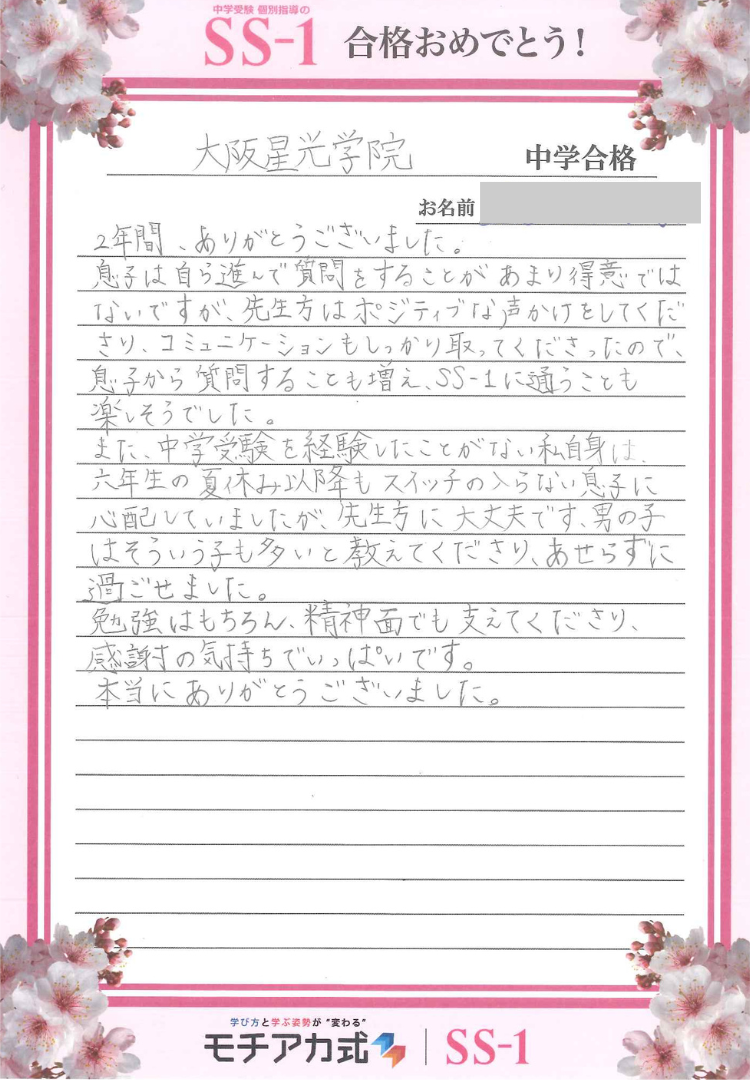 中学受験 個別指導の
SS-1 合格おめでとう!
大阪星光学院 中学合格
お名前
2年間、ありがとうございました。
息子は自ら進んで質問をすることがあまり得意では
ないですが、先生方はポジティブな声かけをしてくだ
さり、コミュニケーションもしっかり取ってくださったので、
息子から質問することも増え、SS-1に通うことも
楽しそうでした。
また、中学受験を経験したことがない私自身は、
六年生の夏休み以降もスイッチの入らない息子に
心配していましたが、先生方に大丈夫です、男の子
はそういう子も多いと教えてくださり、あせらずに
過ごせました。
勉強はもちろん、精神面でも支えてくださり、
感謝の気持ちでいっぱいです。
本当にありがとうございました。
学び方と学ぶ姿勢が"変わる"
モチアカ式 | SS-1